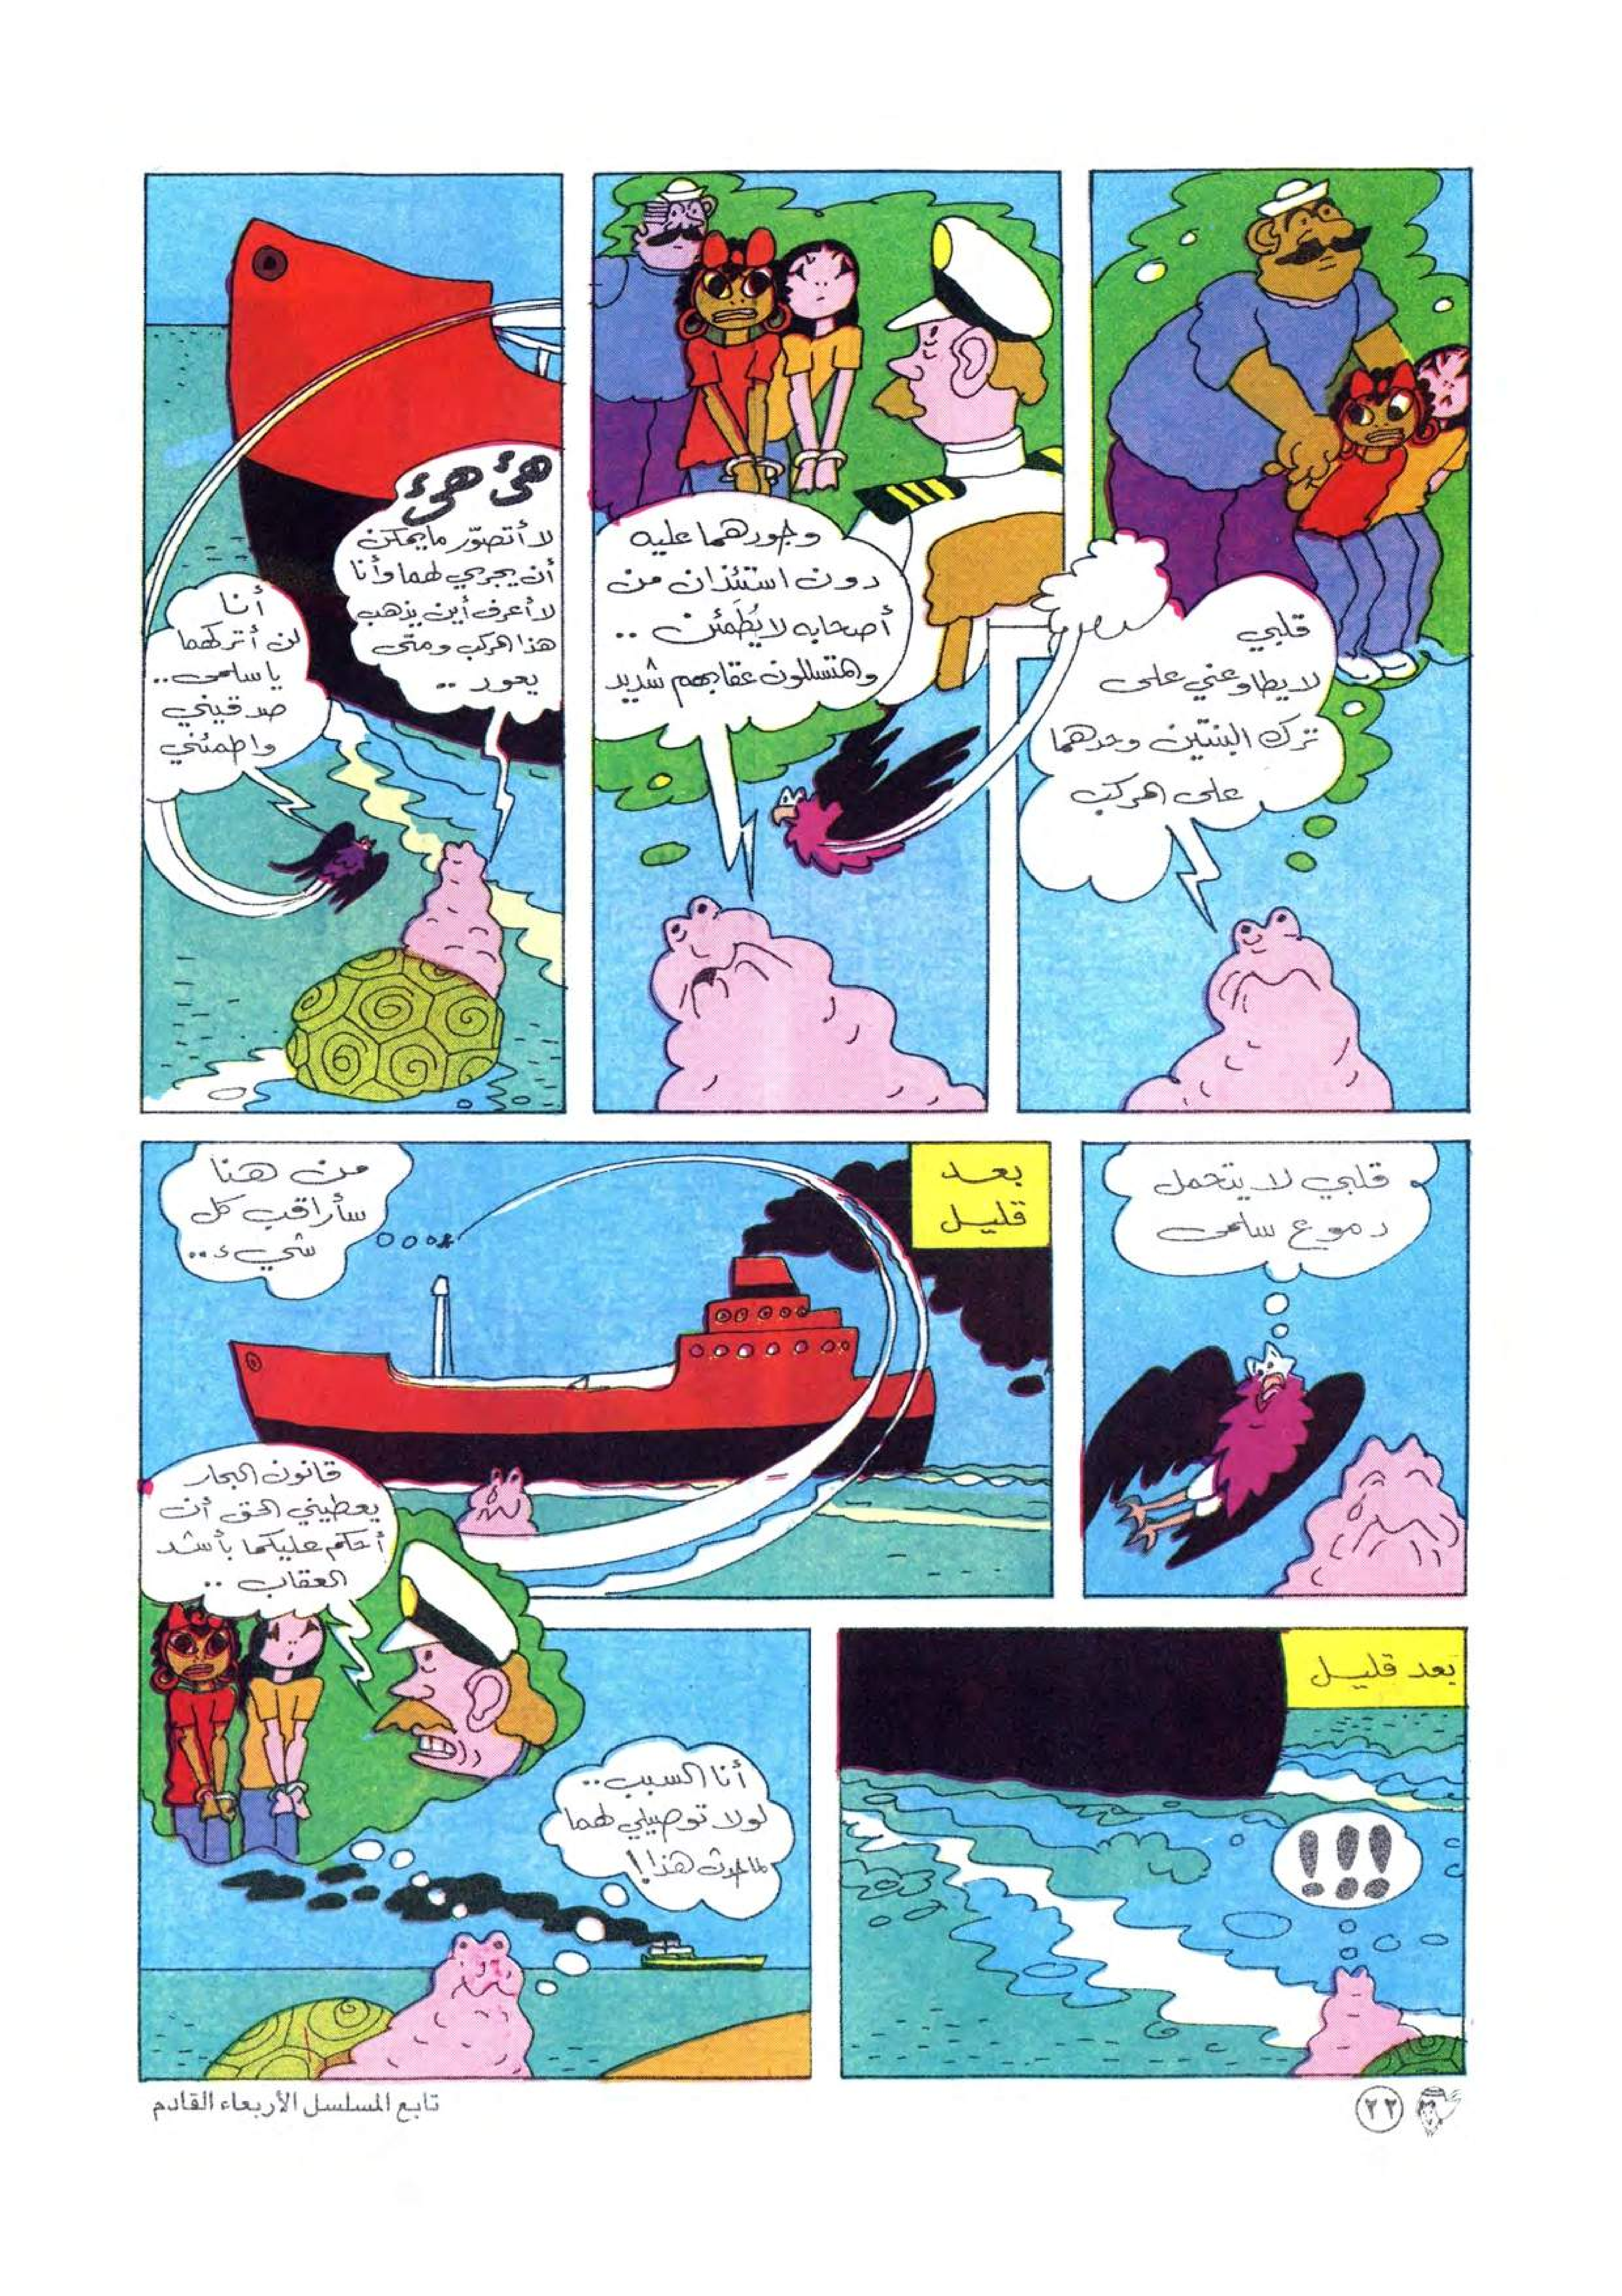 قلبي
لا يطاوعني على
ترك البنتين وحدهما
على المركب
وجودهما عليه
دون استئذان من
أصحابه لا يُطَمئن ..
والمتسللون عقابهم شديد
هئ هئ
لا أتصوّر ما يمكن
أن يجري لهما وأنا
لا أعرف أين يذهب
هذا المركب ومتى
يعود ..
أنا
لن أتركهما
يا سلمى ..
صدقيني
واطمئني
قلبي لا يتحمل
دموع سلمى
بعد
قليل
من هنا
سأراقب كل
شيء ..
بعد قليل
!!!
قانون البحار
يعطيني الحق أن
أحكم عليكما بأشد
العقاب ..
أنا السبب ..
لولا توصيلي لهما
لما حدث هذا !
٢٢
تابع المسلسل الأربعاء القادم